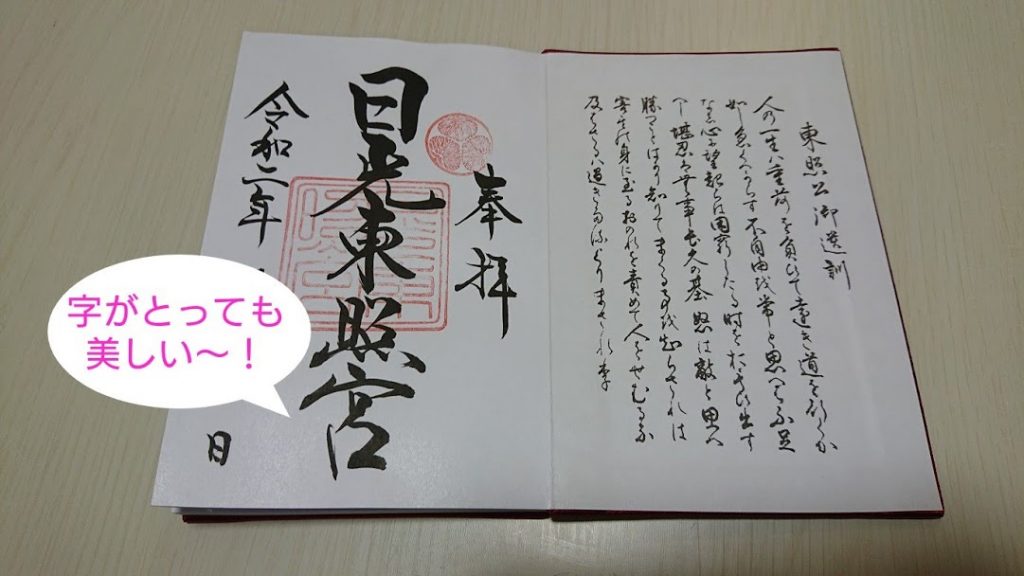 東照公御遺訓
人の一生ハ重荷を負ひて遠き道を行くか
如し急くへからす不自由を常と思へは不足
なし心に望起らは困窮したる時をおもひ出す
へし堪忍は無事長久の基怒は敵と思へ
勝つことはかり知りてまくる事を知らされは
害其身に至るおのれを責めて人をせむるな
及はさるハ過きたるよりまされり
奉拝
日光東照宮
令和二年
日
字がとっても
美しい～！